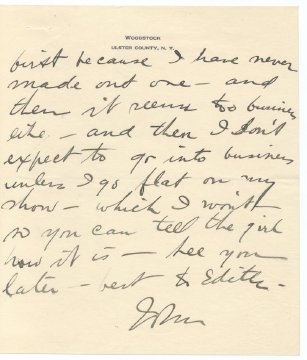 WOODSTOCK
ULSTER COUNTY, N. Y.
first because I have never
made out one – and
then it seems too business
like – and then I don't
expect to go into business
unless I go flat on my
show – which I won't
so you can tell the girl
how it is – see you
later – best to Edith –
John